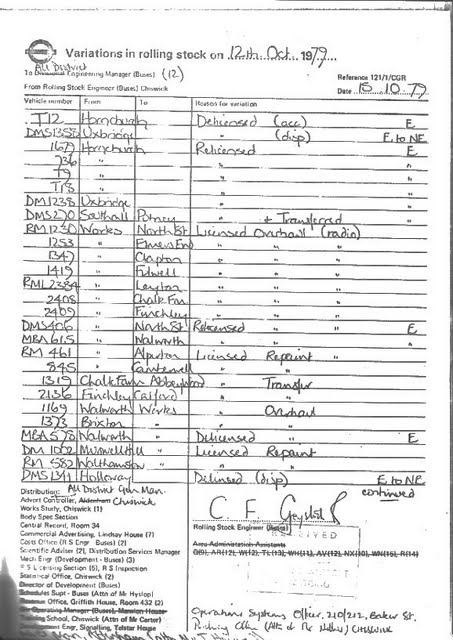 Variations in rolling stock on 12th Oct. 1979
All District
To Divisional Engineering Manager (Buses) (12)
Reference 121/1/CGR
From Rolling Stock Engineer (Buses) Chiswick
Date 15.10.79
Vehicle number From To Reason for variation
T12 Hornchurch Delicensed (acc) E
DMS1358 Uxbridge " (disp) E to NE
1677 Hornchurch Relicensed E
736 " " "
T9 " " "
T18 " " "
DM1238 Uxbridge " "
DMS270 Southall Putney " + Transferred "
RM1230 Works North St Licensed Overhaul (radio)
1253 " Elmers End " " "
1347 " Clapton " " "
1419 " Fulwell " " "
RML2384 " Leyton " " "
2408 " Chalk Fm " " "
2409 " Finchley " " "
DMS406 " North St Relicensed " " E
MBA615 " Walworth " " "
RM 461 " Alperton Licensed Repaint "
845 " Camberwell " "
1319 Chalk Farm Abbeywood " Transfer
2136 Finchley Catford " "
1169 Walworth Works " Overhaul
1373 Brixton " " "
MBA578 Walworth " Delicensed E
DM 1002 Muswell Hill " Licensed Repaint
RM 582 Walthamstow " " "
DMS1341 Holloway Delicensed (disp) E to NE
continued
Distribution: All District Gen Man.
Advert Controller, Aldenham Chiswick
Works Study, Chiswick (1)
Body Spec Section
Central Record, Room 34
Commercial Advertising, Lindsay House (7)
Costs Office (R S Engr Buses) (2)
Scientific Adviser (2), Distribution Services Manager
Mech Engr (Development - Buses) (3)
Licensing Section (5), R S Inspection
Statistical Office, Chiswick (2)
Director of Development (Buses)
Schedules Supt - Buses (Attn of Mr Hyslop)
Office, Griffith House, Room 432 (2)
Operating Manager (Buses) Mansion House
Training School, Chiswick (Attn of Mr Carter)
Engr, Signalling, Telstar House
C. F.
Rolling Stock Engineer (Buses)
RECEIVED
Area Administration Assistants
Operations Systems Officer, 210/212, Baker St.